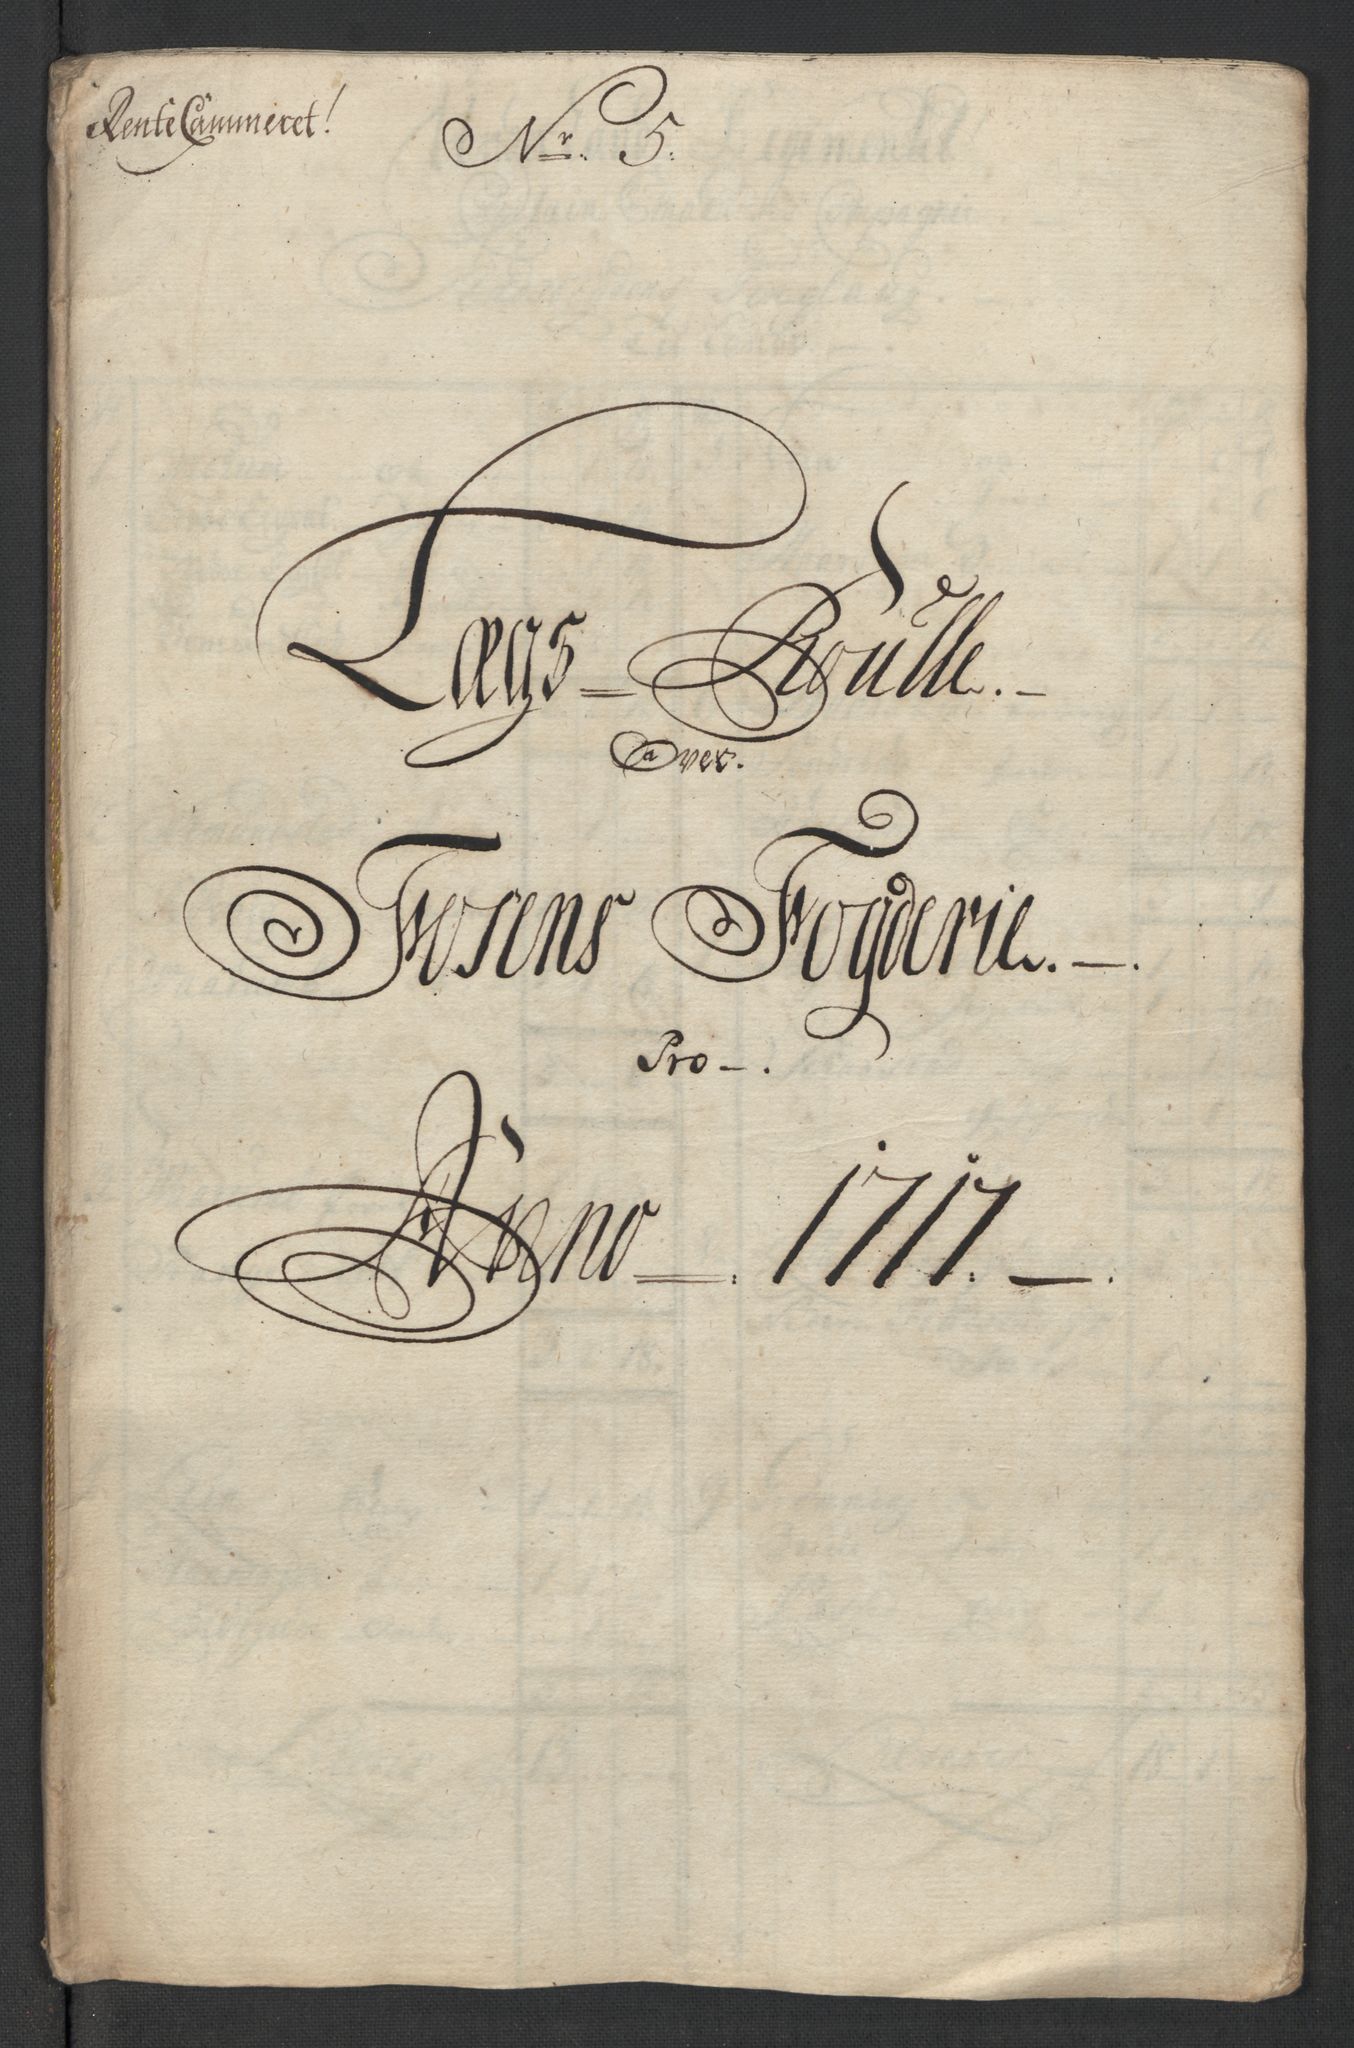 RenteCammeret!
Nr. 5.
Lægs-Roulle.
Over.
Fosens Fogderie.
Pro
Anno 1717.